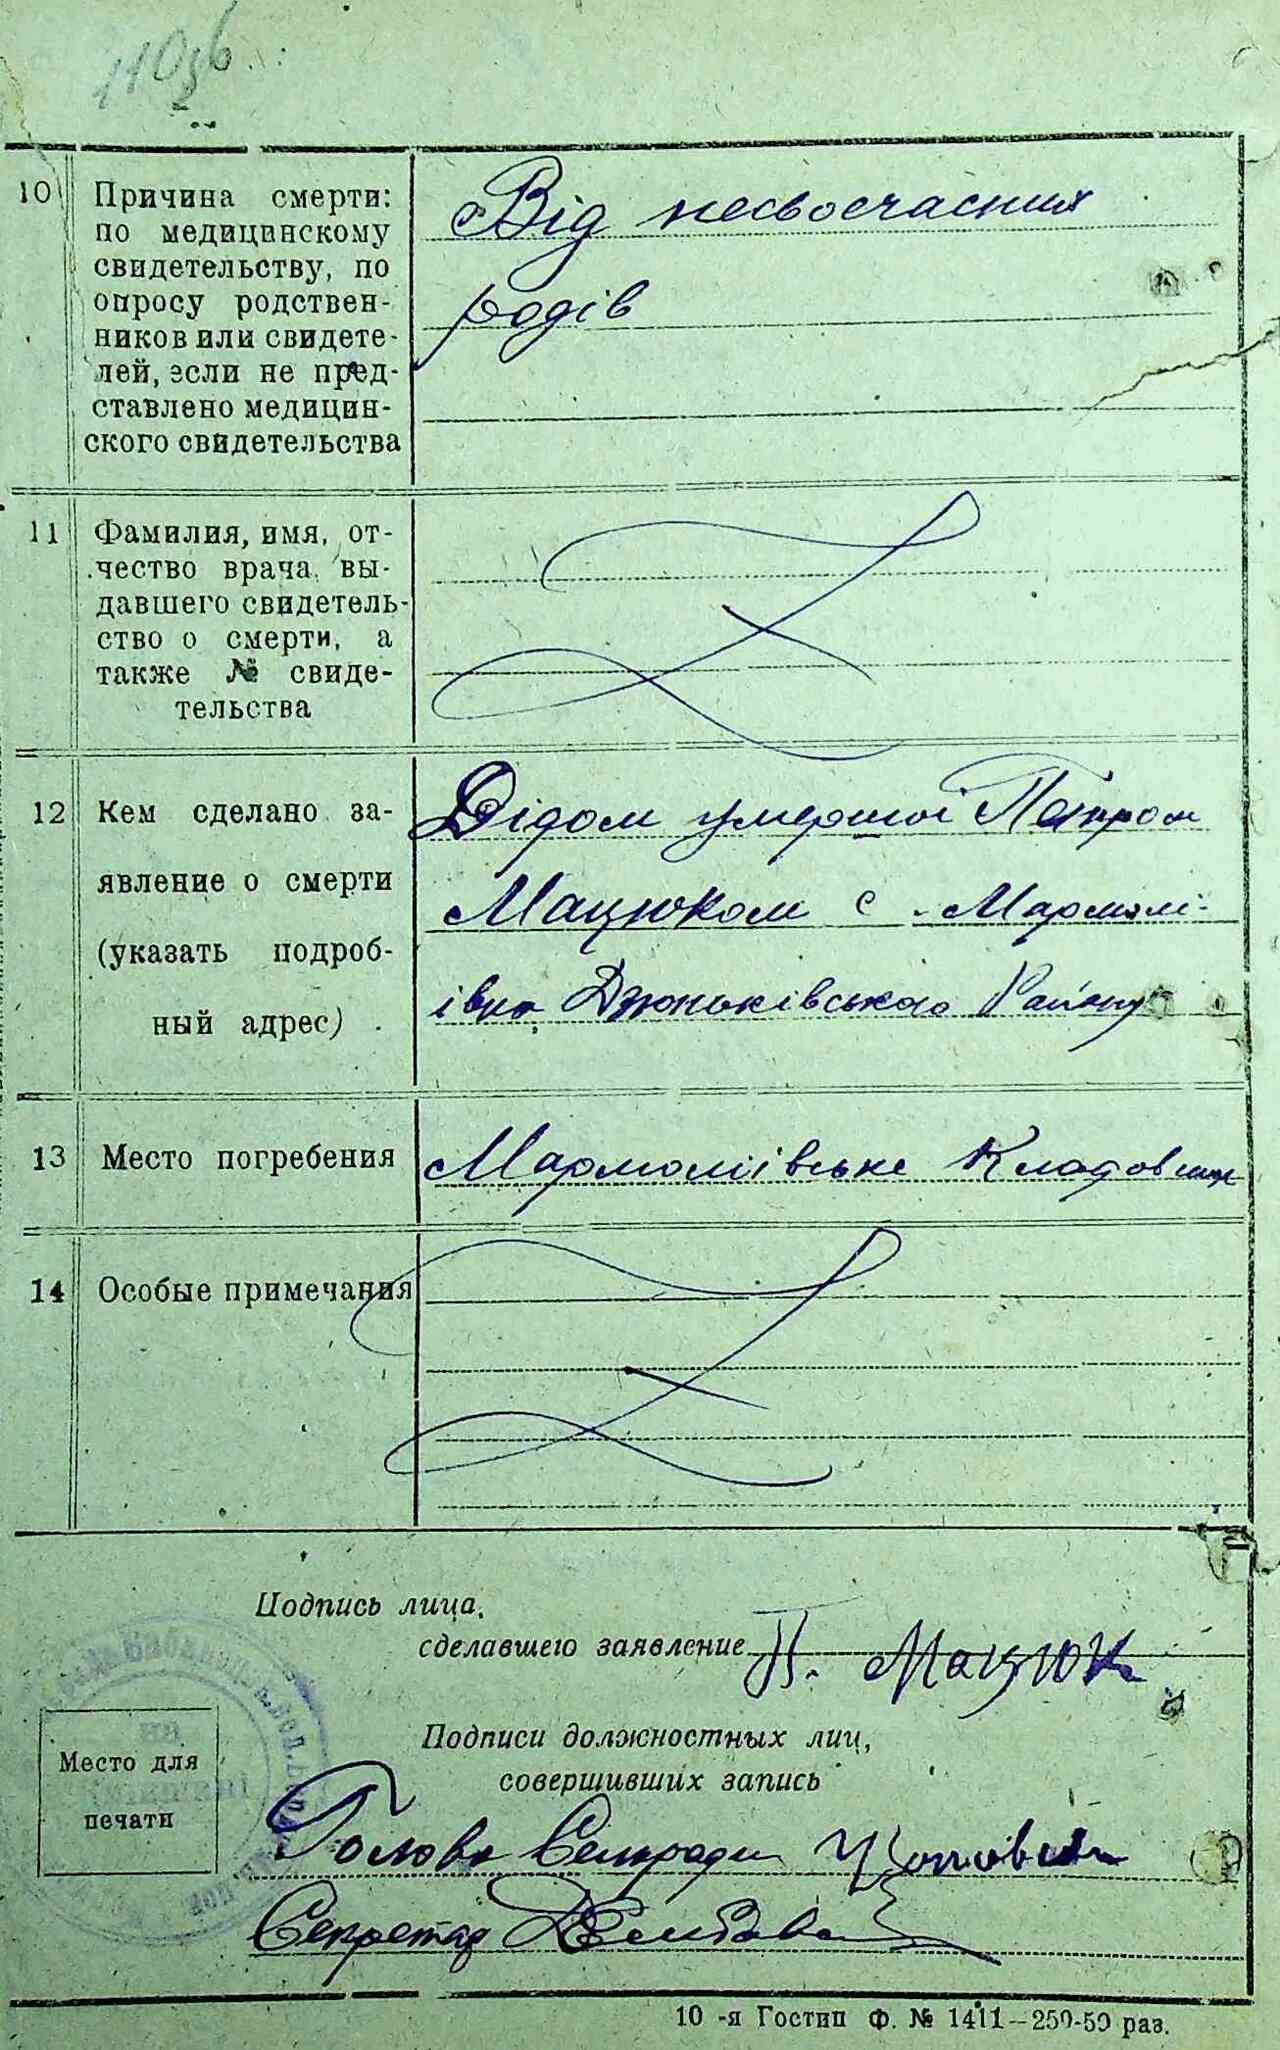 10 Причина смерти:
по медицинскому
свидетельству, по
опросу родствен-
ников или свидете-
лей, если не пред-
ставлено медицин-
ского свидетельства
Від несвоєчасних
родів
11 Фамилия, имя, от-
чество врача, вы-
давшего свидетель-
ство о смерти, а
также № свиде-
тельства
12 Кем сделано за-
явление о смерти
(указать подроб-
ный адрес)
Дідом умершої Петром
Мацюком с. Мармолі-
івка Дзюньківського Району
13 Место погребения
Мармоліївське Кладовище
14 Особые примечания
Подпись лица,
сделавшего заявление П. Мацюк
Место для
печати
Подписи должностных лиц,
совершивших запись
Голова Сельради
Секретар
10 -я Гостип Ф. № 1411—250-50 раз.